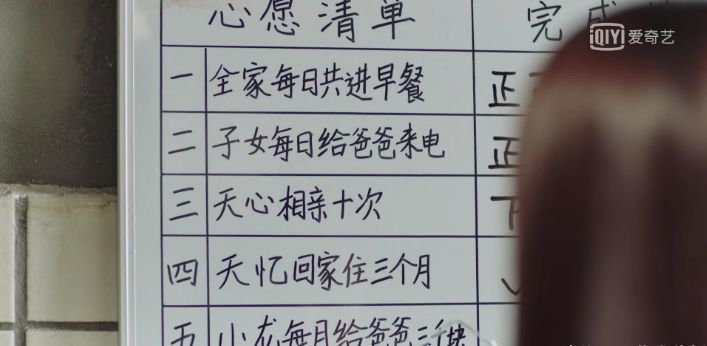 心愿清单 完成
iQIYI 爱奇艺
一 全家每日共进早餐 正
二 子女每日给爸爸来电 正
三 天心相亲十次
四 天忆回家住三个月
五 小龙每月给爸爸三